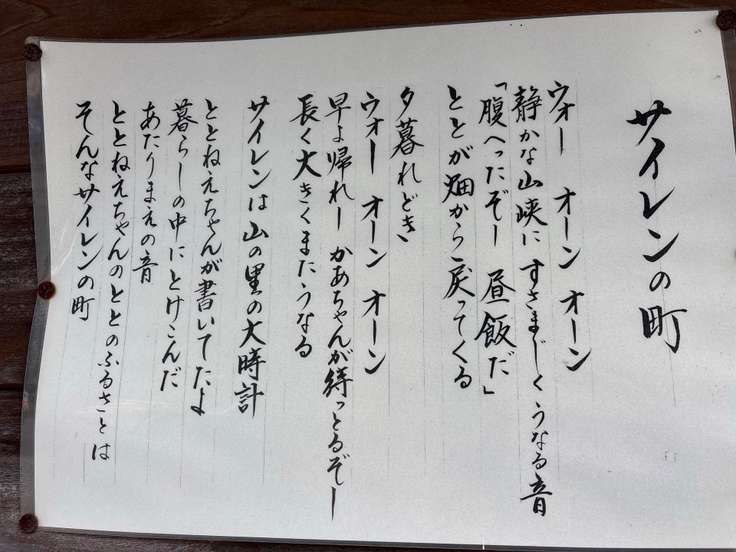 サイレンの町
ウォー オーン オーン
静かな山峡に すさまじくうなる音
「腹へったぞー 昼飯だ」
ととが畑から戻ってくる
夕暮れどき
ウォー オーン オーン
早よ帰れー かあちゃんが待っとるぞー
長く大きくまたうなる
サイレンは山の里の大時計
ととねえちゃんが書いてたよ
暮らしの中にとけこんだ
あたりまえの音
ととねえちゃんのととのふるさとは
そんなサイレンの町